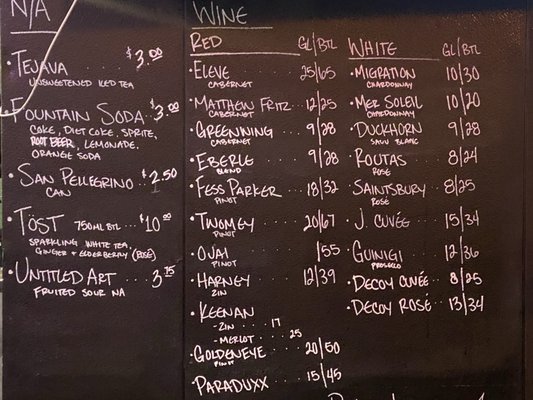 N/A
Tejava $3.00
Unsweetened Iced Tea
Fountain Soda $3.00
Coke, Diet Coke, Sprite,
Root Beer, Lemonade,
Orange Soda
San Pellegrino $2.50
Can
Töst 750ml btl $10.00
Sparkling White Tea,
Ginger + Elderberry (Rosé)
Untitled Art 3.75
Fruited Sour NA
Wine
Red GL/BTL
Eleve 25/65
Cabernet
Matthew Fritz 12/25
Cabernet
Greenning 9/28
Cabernet
Eberle 9/28
Blend
Fess Parker 18/32
Pinot
Twomey 20/67
Pinot
Ojai /55
Pinot
Harney 12/39
Zin
Keenan
- Zin 17
- Merlot 25
Goldeneye 20/50
Pinot
Paraduxx 15/45
White GL/BTL
Migration 10/30
Chardonnay
Mer Soleil 10/20
Chardonnay
Duckhorn 9/28
Sauv Blanc
Routas 8/24
Rosé
Saintsbury 8/25
Rosé
J. Cuvée 15/34
Guinigi 12/36
Prosecco
Decoy Cuvée 8/25
Decoy Rosé 13/34